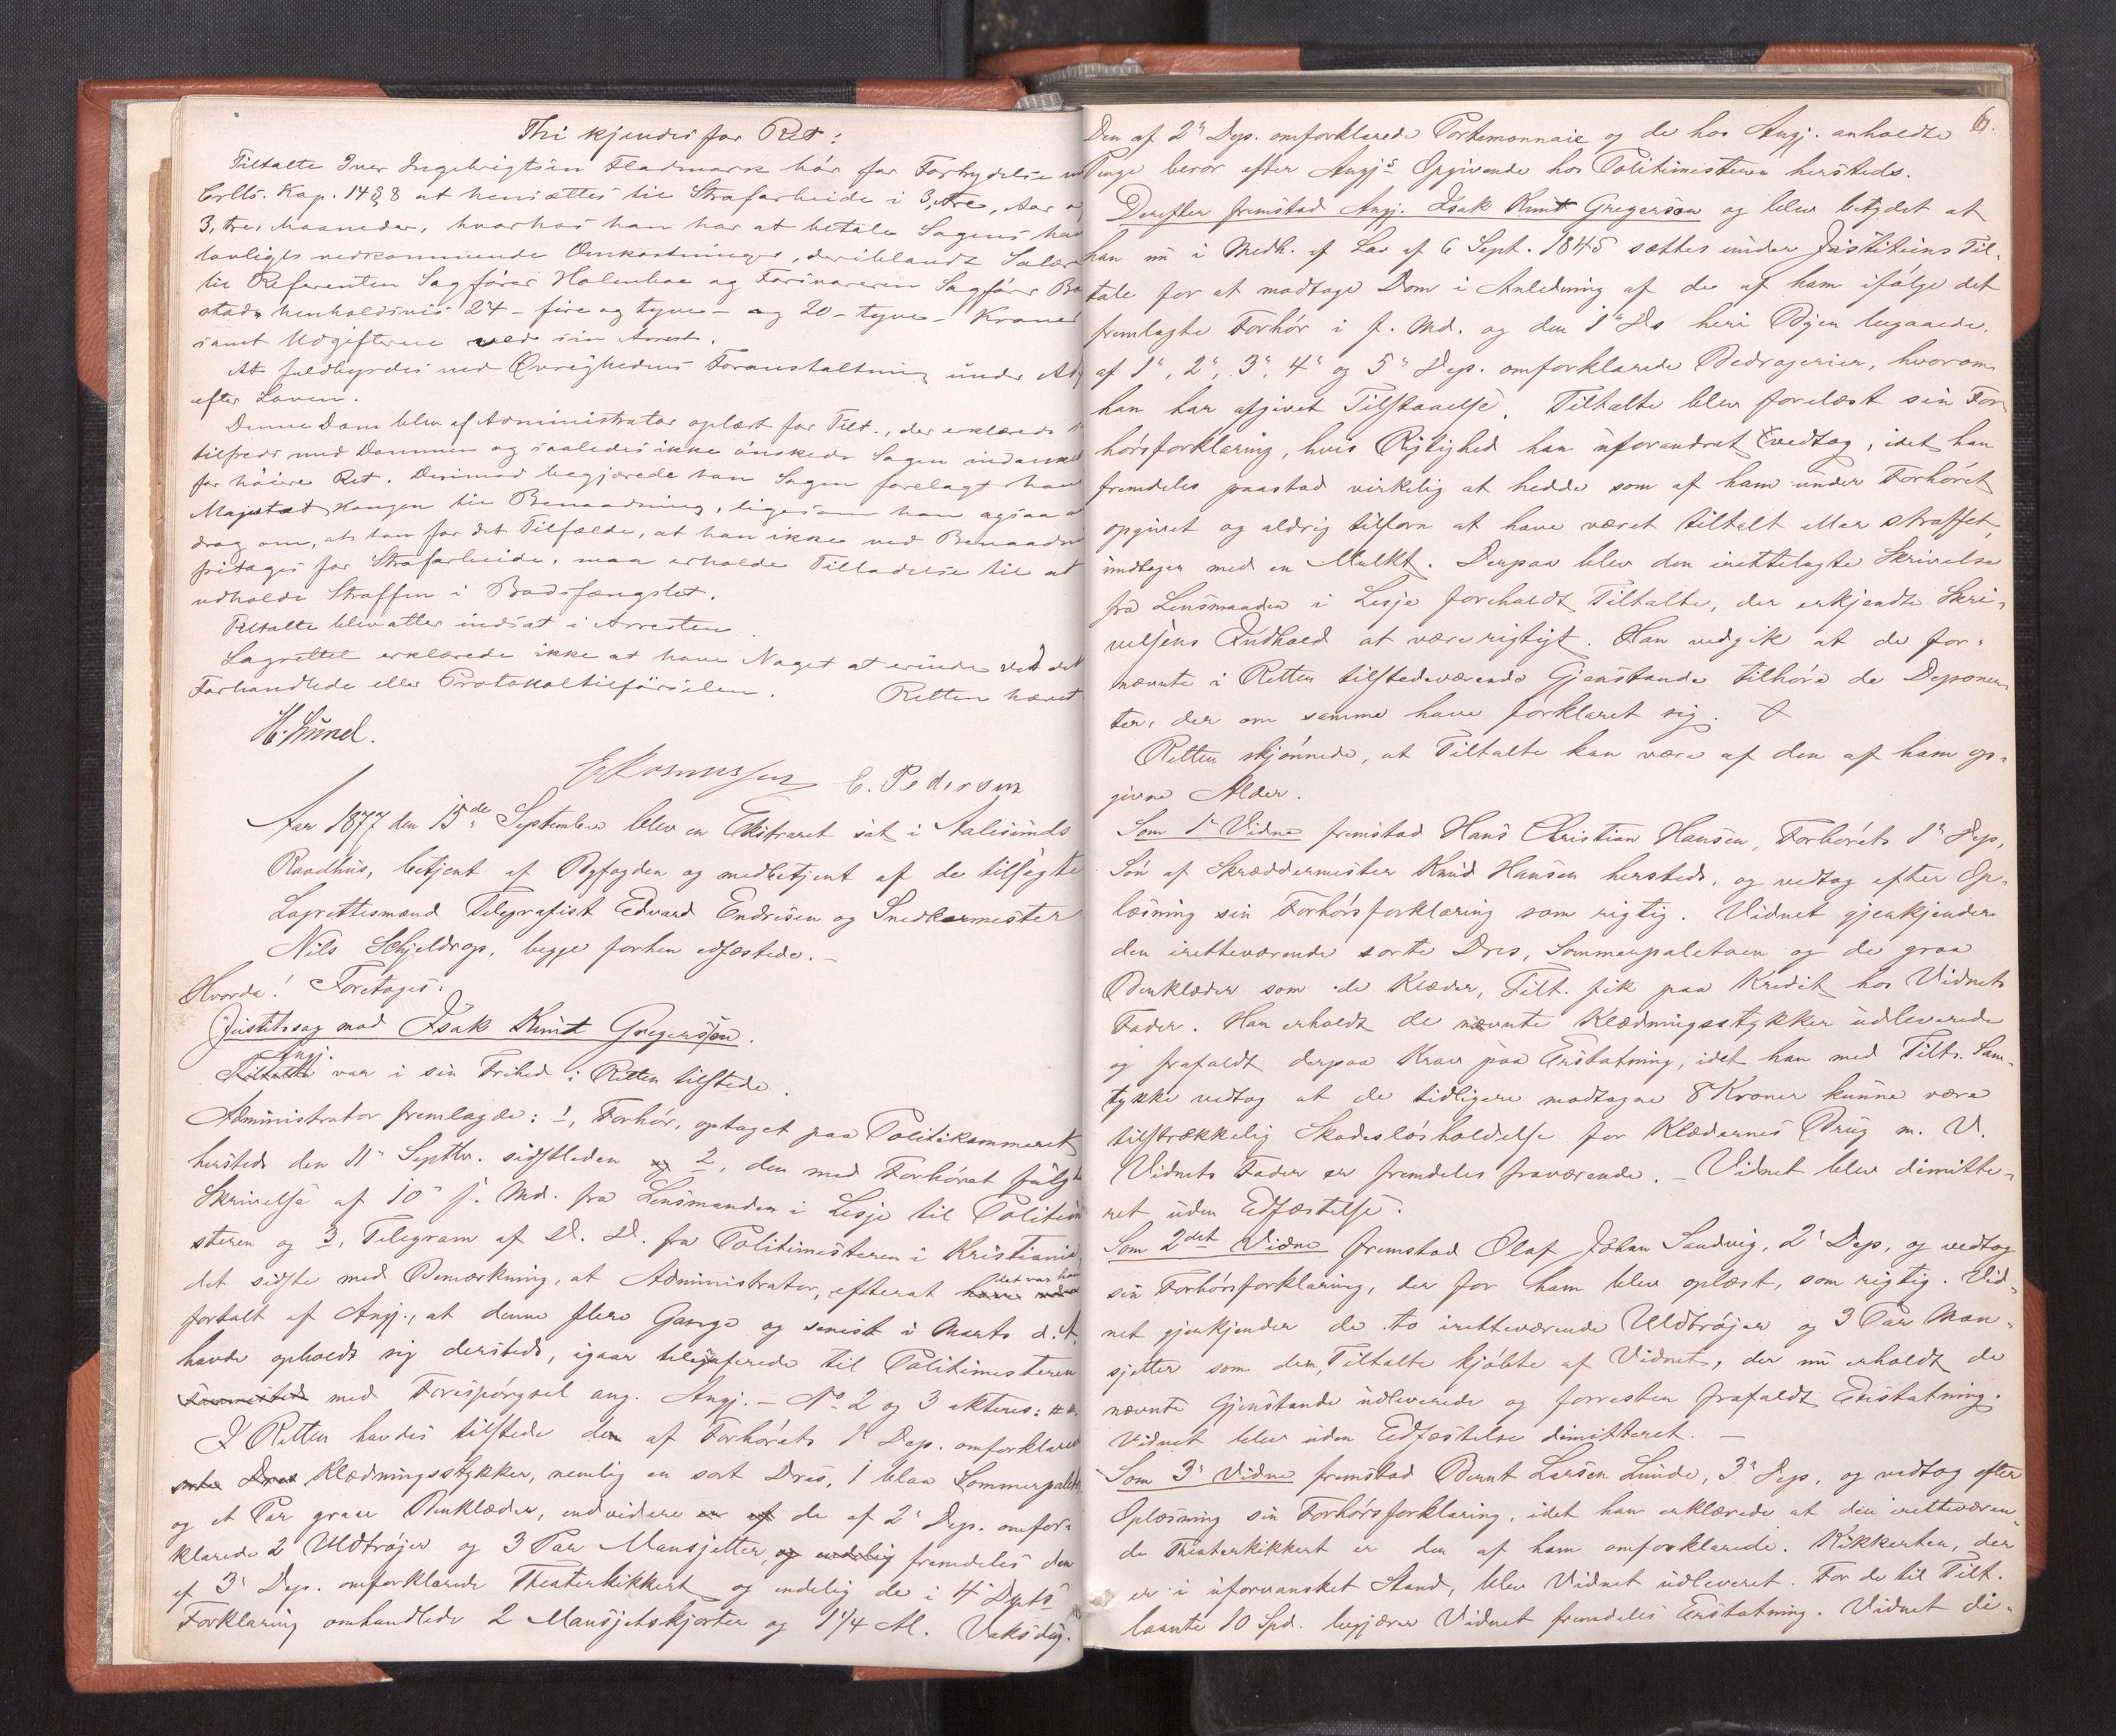 Thi kjendes for Ret:
Tiltalte Iver Ingebrigtsen Fladmark bör for Forbrydelse
Crlls. Kap. 14 § 8 at hensættes til Strafarbeide i 3, tre, Aar
3, tre, Maaneder, hvorhos han har at betale Sagens
lovligts vedkommende Omkostninger, deriblandt Salær
til Referenten Sagförer Holmboe og Forsvareren Sagförer
henholdsvis 24 - fire og tyve - og 20 - tyve - Kroner
samt Udgifterne ved sin Arrest.
At fuldbyrdes ved Øvrighedens Foranstaltning under
efter Loven.
Denne Dom blev af Administrator oplæst for Tilt., der erklærede
tilfreds med Dommen og saaledes ikke önskede Sagen indanket
for höiere Ret. Derimod begjærede han Sagen forelagt
Majestæt Kongen til Benaadning, ligesom han ogsaa
drog om, at han for det Tilfælde, at han ikke ved
fritages for Strafarbeide, maa erholde Tilladelse til at
udholde Straffen i Bodsfængslet.
Tiltalte blev atter indsat i Arresten.
Lagrettet erklærede ikke at have Noget at erindre ved det
Forhandlede eller Protokoltilförselen. Retten hævet
H. Lund.
E. Rasmussen E. Pedersen
Aar 1877 den 15de September blev en Ekstraret sat i Aalesunds
Raadhus, betjent af Byfogden og medbetjent af de tilsagte
Lagrettesmænd Telegrafist Edvard Endresen og Snedkermester
Nils Schjeldrop, begge forhen edfæstede. -
Hvorda! Foretoges:
Justitssag mod Isak Knut Gregersson.
Angj.
Tiltalte var i sin Frihed i Retten tilstede.
Administrator fremlagde: 1, Forhör, optaget paa Politikammeret
hersteds den 11te Septbr. sidstleden og 2, den med Forhöret fulgte
Skrivelse af 10de f. Md. fra Lensmanden i Lesje til
steren og 3, Telegram af D. D. fra Politimesteren i Kristiania,
det sidste med Bemærkning, at Administrator, efterat det var ham
fortalt af Angj., at denne flere Gange og senest i Marts d. A.
havde opholdt sig dersteds, igaar telegraferede til Politimesteren
med Forespörgsel ang. Angj. - No 2 og 3 akteres:
I Retten havdes tilstede den af Forhörets 1ste Dep. omforklarede
sorte Dres Klædningsstykker, nemlig en sort Dres, 1 blaa
og et Par graae Benklæder, endvidere en af de af 2den Dep. omfor-
klarede 2 Uldtröjer og 3 Par Mansjetter, og endelig fremdeles den
af 3die Dep. omforklarede Theaterkikkert og endelig de i 4de Depts
Forklaring omhandlede 2 Mansjetskjorter og 1 1/4 Al. Voksdug.
6.
Den af 2den Dep. omforklarede Portemonnaie og de hos Angj. anholdte
Penge beror efter Angjs Opgivende hos Politimesteren hersteds.
Derefter fremstod Angj. Isak Knut Gregersson og blev betydet at
han nu i Medh. af Lov af 6 Sept. 1845 sættes under Justitiens Til-
tale for at modtage Dom i Anledning af de af ham ifölge det
fremlagte Forhör i f. Md. og den 1ste Ds heri Byen begaaede,
af 1ste, 2den, 3die, 4de og 5te Dep. omforklarede Bedragerier, hvorom
han har afgivet Tilstaaelse. Tiltalte blev forelæst sin For-
hörsforklaring, hvis Rigtighed han uforandret vedtog, idet han
fremdeles paastod virkelig at hedde som af ham under Forhöret
opgivet og aldrig tilforn at have været tiltalt eller straffet,
undtagen med en Mulkt. Derpaa blev den irettelagte Skrivelse
fra Lensmanden i Lesje foreholdt Tiltalte, der erkjendte Skri-
velsens Indhold at være rigtigt. Han vedgik at de for-
nævnte i Retten tilstedeværende Gjenstande tilhöre de Deponen-
ter, der om samme have forklaret sig.
Retten skjönnede, at Tiltalte kan være af den af ham op-
givne Alder.
Som 1ste Vidne fremstod Hans Christian Hansen, Forhörets 1ste Dep,
Sön af Skræddermester Knud Hansen hersteds, og vedtog efter Op-
læsning sin Forhörsforklaring som rigtig. Vidnet gjenkjender
den iretteværende sorte Dres, Sommerpaletoen og de graa
Benklæder som de Klæder, Tilt. fik paa Kredit hos Vidnets
Fader. Han erholdt de nævnte Klædningsstykker udleverede
og frafaldt derpaa Krav paa Erstatning, idet han med Tilts. Sam-
tykke vedtog at de tidligere modtagne 8 Kroner kunne være
tilstrækkelig Skadeslösholdelse for Klædernes Brug m. V.
Vidnets Fader er fremdeles fraværende. - Vidnet blev dimitte-
ret uden Edfæstelse.
Som 2det Vidne fremstod Olaf Johan Sandvig, 2den Dep, og vedtog
sin Forhörsforklaring, der for ham blev oplæst, som rigtig. Vid-
net gjenkjender de to iretteværende Uldtröjer og 3 Par Man-
sjetter som dem, Tiltalte kjöbte af Vidnet, der nu erholdt de
nævnte Gjenstande udleverede og forresten frafaldt Erstatning.
Vidnet blev uden Edfæstelse dimitteret. -
Som 3die Vidne fremstod Bernt Larsen Lunde, 3die Dep, og vedtog efter
Oplæsning sin Forhörsforklaring, idet han erklærede at den iretteværen-
de Theaterkikkert er den af ham omforklarede. Kikkerten, der
er i uforvansket Stand, blev Vidnet udleveret. For de til Tilt.
laante 10 Spd. begjærer Vidnet fremdeles Erstatning. Vidnet di-